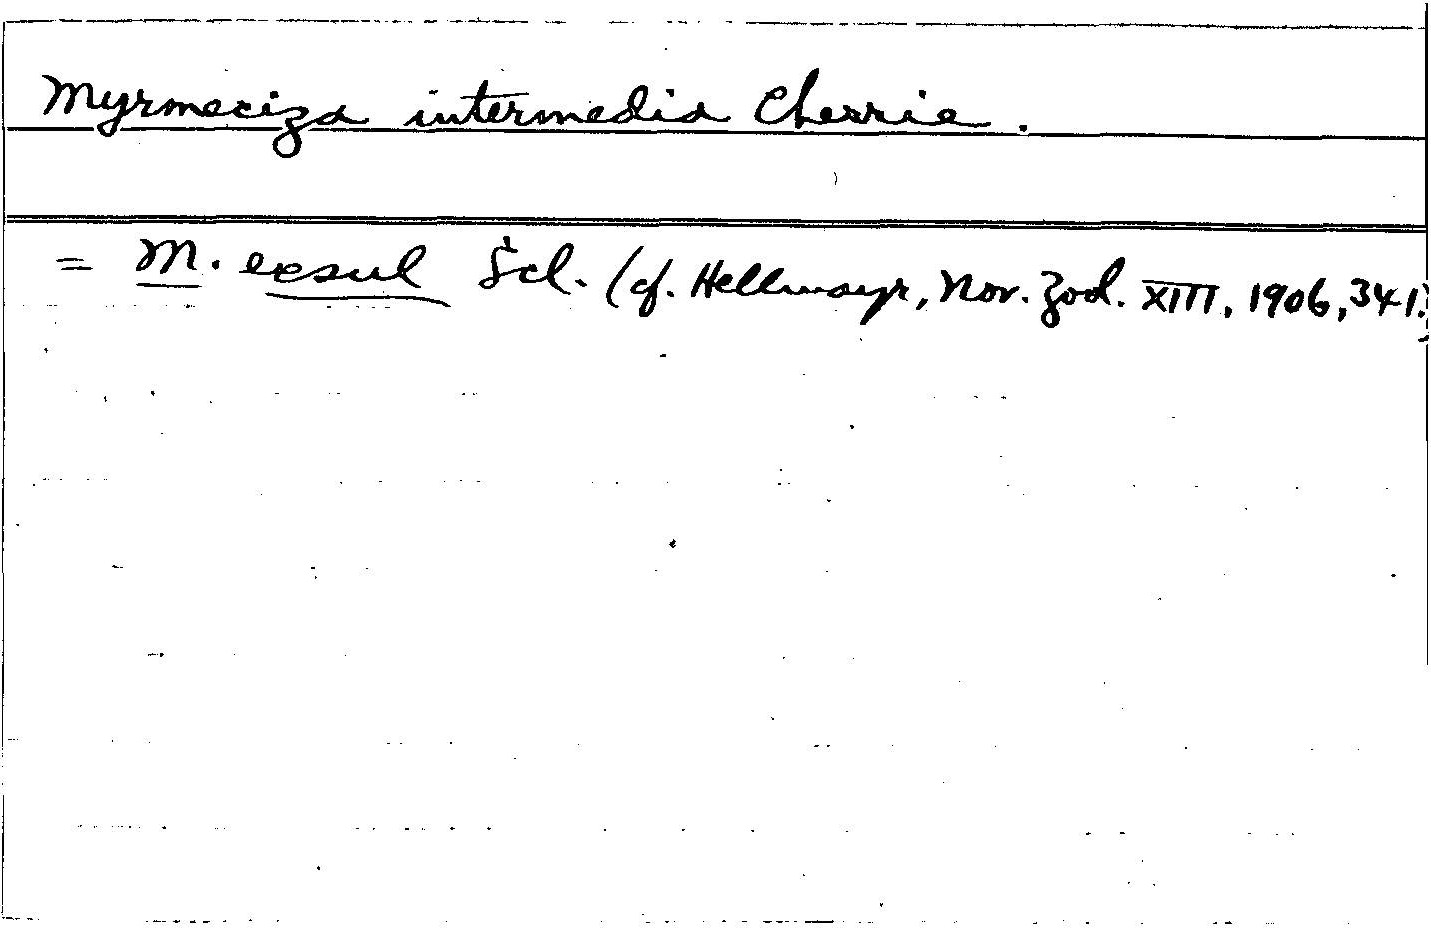 Myrmeciza intermedia Cherrie.
= M. exsul Scl. (cf. Hellmayr, Nov. Zool. XIII, 1906, 341.)